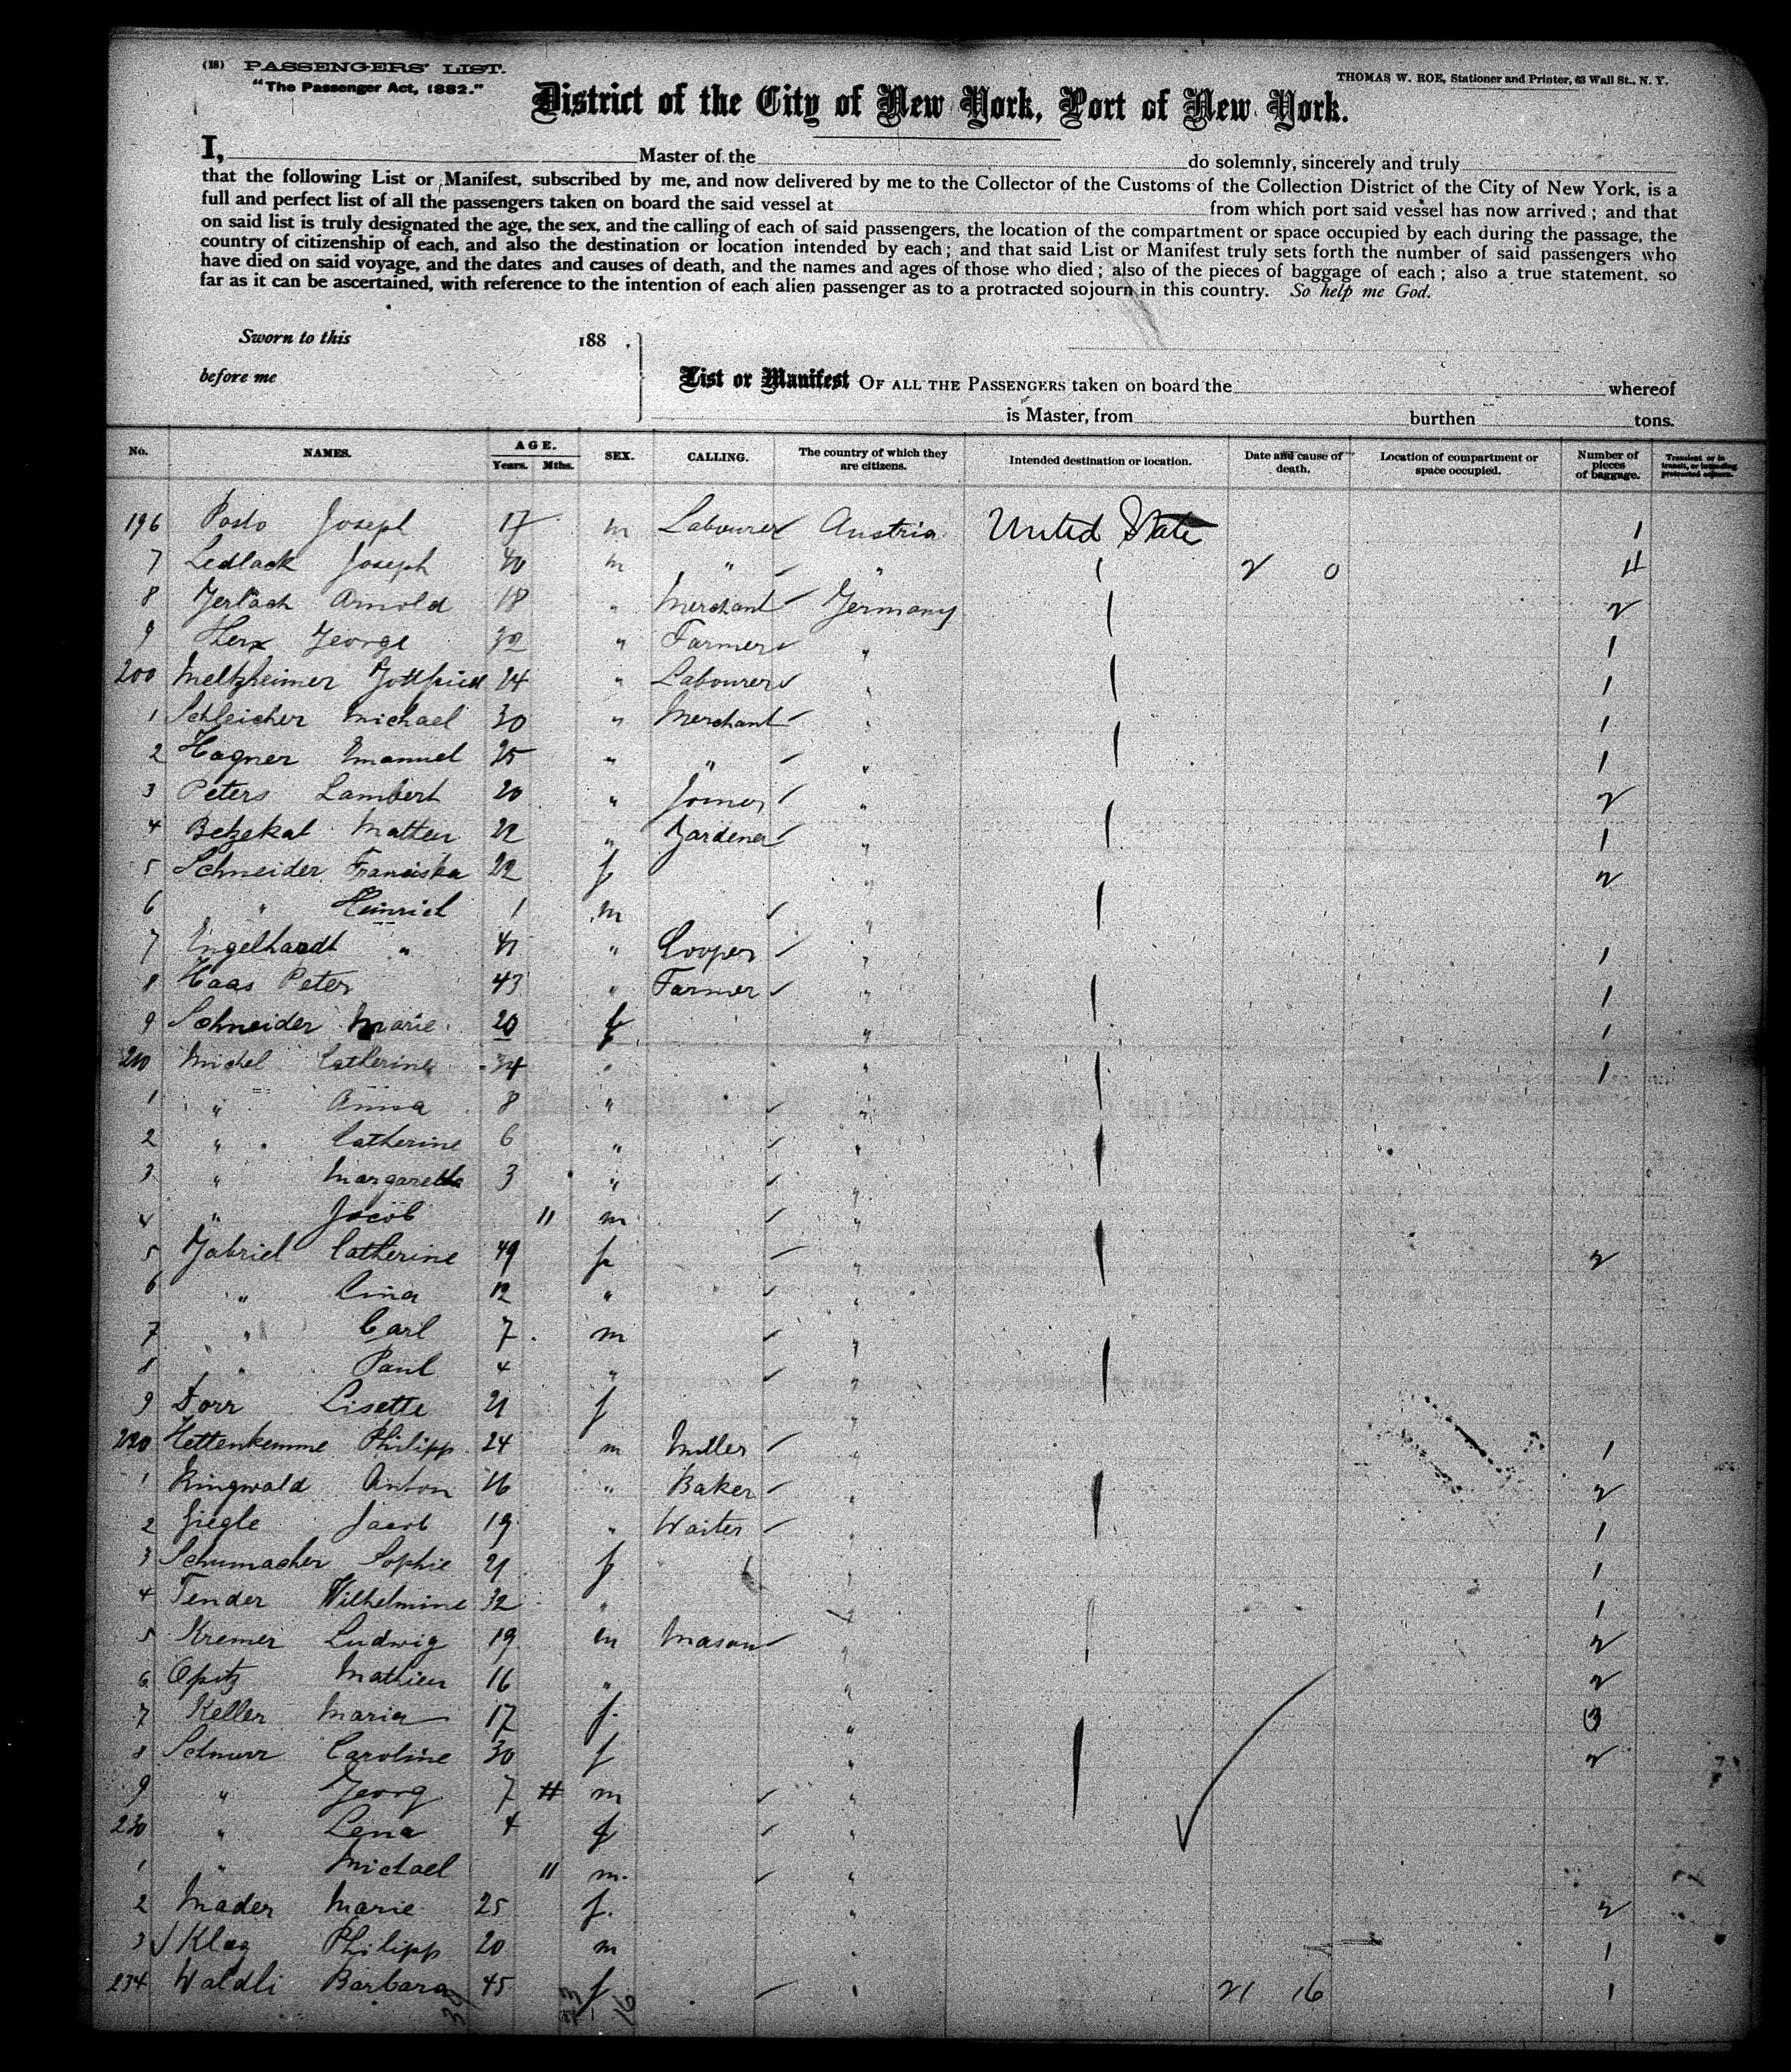 (18) PASSENGERS' LIST.
"The Passenger Act, 1882."
THOMAS W. ROE, Stationer and Printer, 63 Wall St., N. Y.
District of the City of New York, Port of New York.
I, Master of the do solemnly, sincerely and truly
that the following List or Manifest, subscribed by me, and now delivered by me to the Collector of the Customs of the Collection District of the City of New York, is a
full and perfect list of all the passengers taken on board the said vessel at from which port said vessel has now arrived; and that
on said list is truly designated the age, the sex, and the calling of each of said passengers, the location of the compartment or space occupied by each during the passage, the
country of citizenship of each, and also the destination or location intended by each; and that said List or Manifest truly sets forth the number of said passengers who
have died on said voyage, and the dates and causes of death, and the names and ages of those who died; also of the pieces of baggage of each; also a true statement, so
far as it can be ascertained, with reference to the intention of each alien passenger as to a protracted sojourn in this country. So help me God.
Sworn to this 188 .
before me
List or Manifest OF ALL THE PASSENGERS taken on board the whereof
is Master, from burthen tons.
No. NAMES. AGE. Years. Mths. SEX. CALLING. The country of which they are citizens. Intended destination or location. Date and cause of death. Location of compartment or space occupied. Number of pieces of baggage. Transient or in transit, or intending protracted sojourn.
196 Posto Joseph 17 m Labourer Austria United State 1
7 Ledlack Joseph 40 m " " 2 0 4
8 Gerlach Arnold 18 " Merchant Germany 2
9 Herx George 32 " Farmer " 1
200 Meltzheimer Gottfried 24 " Labourer " 1
1 Schleicher Michael 30 " Merchant " 1
2 Hagner Emanuel 25 " " " 1
3 Peters Lambert 20 " Joiner " 2
4 Betzekal Matteu 22 " Gardener " 1
5 Schneider Franciska 22 f " 2
6 " Heinrich 1 m "
7 Engelhardt " 41 " Cooper " 1
8 Haas Peter 43 " Farmer " 1
9 Schneider Marie 20 f " 1
210 Michel Catherine 34 " " 1
1 " Anna 8 " "
2 " Catherine 6 " "
3 " Margaretta 3 " "
4 " Jacob 11 m "
5 Gabriel Catherine 49 f " 2
6 " Lina 12 " "
7 " Carl 7 m "
8 " Paul 4 " "
9 Dorr Lisette 21 f "
220 Hettenkemme Philipp 24 m Miller " 1
1 Ringwald Anton 16 " Baker " 2
2 Ziegle Jacob 19 " Waiter " 1
3 Schumacher Sophie 21 f " 1
4 Tender Wilhelmine 32 " " 1
5 Kremer Ludwig 19 m Mason " 2
6 Opitz Mathieu 16 " " 2
7 Keller Maria 17 f " 3
8 Schnurr Caroline 30 f " 2
9 " Georg 7 m "
230 " Lena 4 f "
1 " Michael 11 m "
2 Mader Marie 25 f " 2
3 Klag Philipp 20 m " 1
234 Waldli Barbara 45 f " 21 16 1